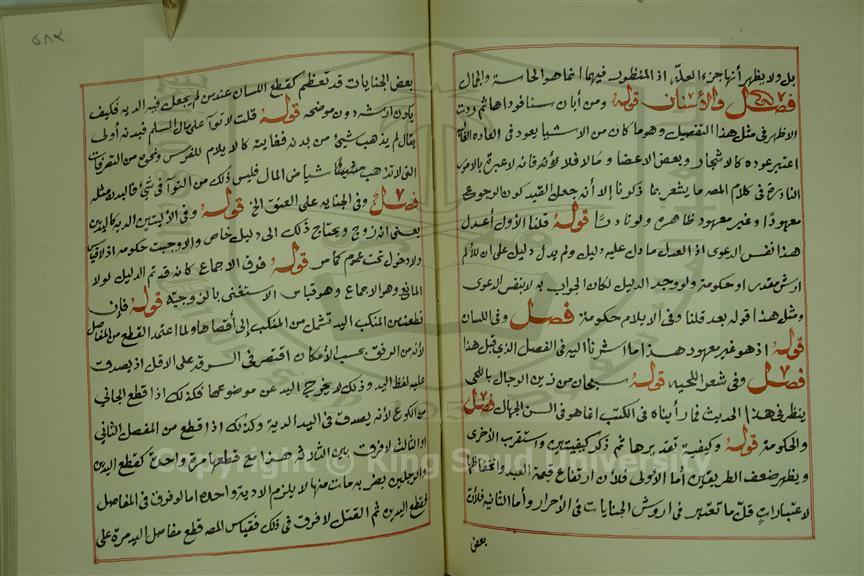 بل ولا يظهر أنها جزء العلة اذ المنظور فيهما انما هو الحاسة والجمال
فصل والأسنان قوله ومن أبان سنا فوداها ثم ردت
الاظهر في مثل هذا التفصيل وهو ما كان من الاشيا يعود في العاده
اعتبر عوده كالاشجار وبعض الاعضا ومالا فلا لا عبرة بالامور
النادرة في كلام المصه ما يشعر بما ذكرنا إلا أنه جعل القيد كون الرجوع
معهودًا وغير معهود ظاهره ولو نادرًا قوله قلنا الأول أعدل
هذا نفس الدعوى اذ العدل ما دل عليه دليل ولم يدل دليل على ان للألم
ارش مقدر او حكومة ولو وجد الدليل لكان الجواب به لا بنفس الدعوى
ومثل هذا قوله بعد قلنا وفي الايلام حكومة فصل وفي اللسان
قوله اذ هو غير معهود هذا ما اشرنا اليه في الفصل الذي قبل هذا
فصل وفي شعر اللحيه قوله سبحان من زين الرجال باللحى
ينظر في هذا الحديث فما رأيناه في الكتب انما هو في السن الجهال فصل
والحكومة قوله وكيفية تقديرها ثم ذكر كيفيتين واستقرب الأخرى
ويظهر ضعف الطريقين أما الأولى فلأن ارتفاع قيمة العبد وانخفاضها
لاعتبارات قل ما تعتبر في اروش الجنايات في الأحرار وأما الثانيه فلأن
بعض
بعض الجنايات قد تعظم كقطع اللسان عند من لم يجعل فيه الدية فكيف
يكون ارشه دون موضحه قوله قلت لا توآ على مال المسلم فبدنه أولى
يقال لم يذهب شيئ من بدنه فغايته كالايلام للفوس ونحوه من التصرفات
التي لا تذهب شيًا من المال فليس ذلك من التوآ في شئ فالبدن مثله
فصل وفي الجنايه على العنق الخ قوله وفي الأليتين الدية كاليدين
يعني انه زوج ويحتاج ذلك الى دليل خاص والا وجبت حكومة اذ لا قياس
ولا دخول تحت عموم كما مر قوله فرق الاجماع كانه قد تم الدليل لولا
المانع وهو الاجماع وهو قياس الاستغنى بالزوجيه قوله فإن
قطعت من المنكب اليد تشمل من المنكب إلى أقصاها ولما اعتمد القطع من المفاصل
لأنه من الرفق بحسب الأمكان اقتصر في السرقه على الاقل اذ يصدق
عليه لفظ اليد وذلك لا يخرج اليد عن موضوعها فكذلك اذا قطع الجاني
من الكوع لأنه يصدق في اليد الدية وكذلك اذا قطع من المفصل الثاني
او الثالث لا فرق بين الثلاثه هذا مع قطعها مرة واحدة كقطع اليدين
والرجلين بضربه مات منها لا يلزم الا دية واحدة اما لو فرق في المفاصل
فقطع اليدين ثم القتل لا فرق في ذلك فقياس المصه قطع مفاصل اليد مرة على
Copyright © King Saud University